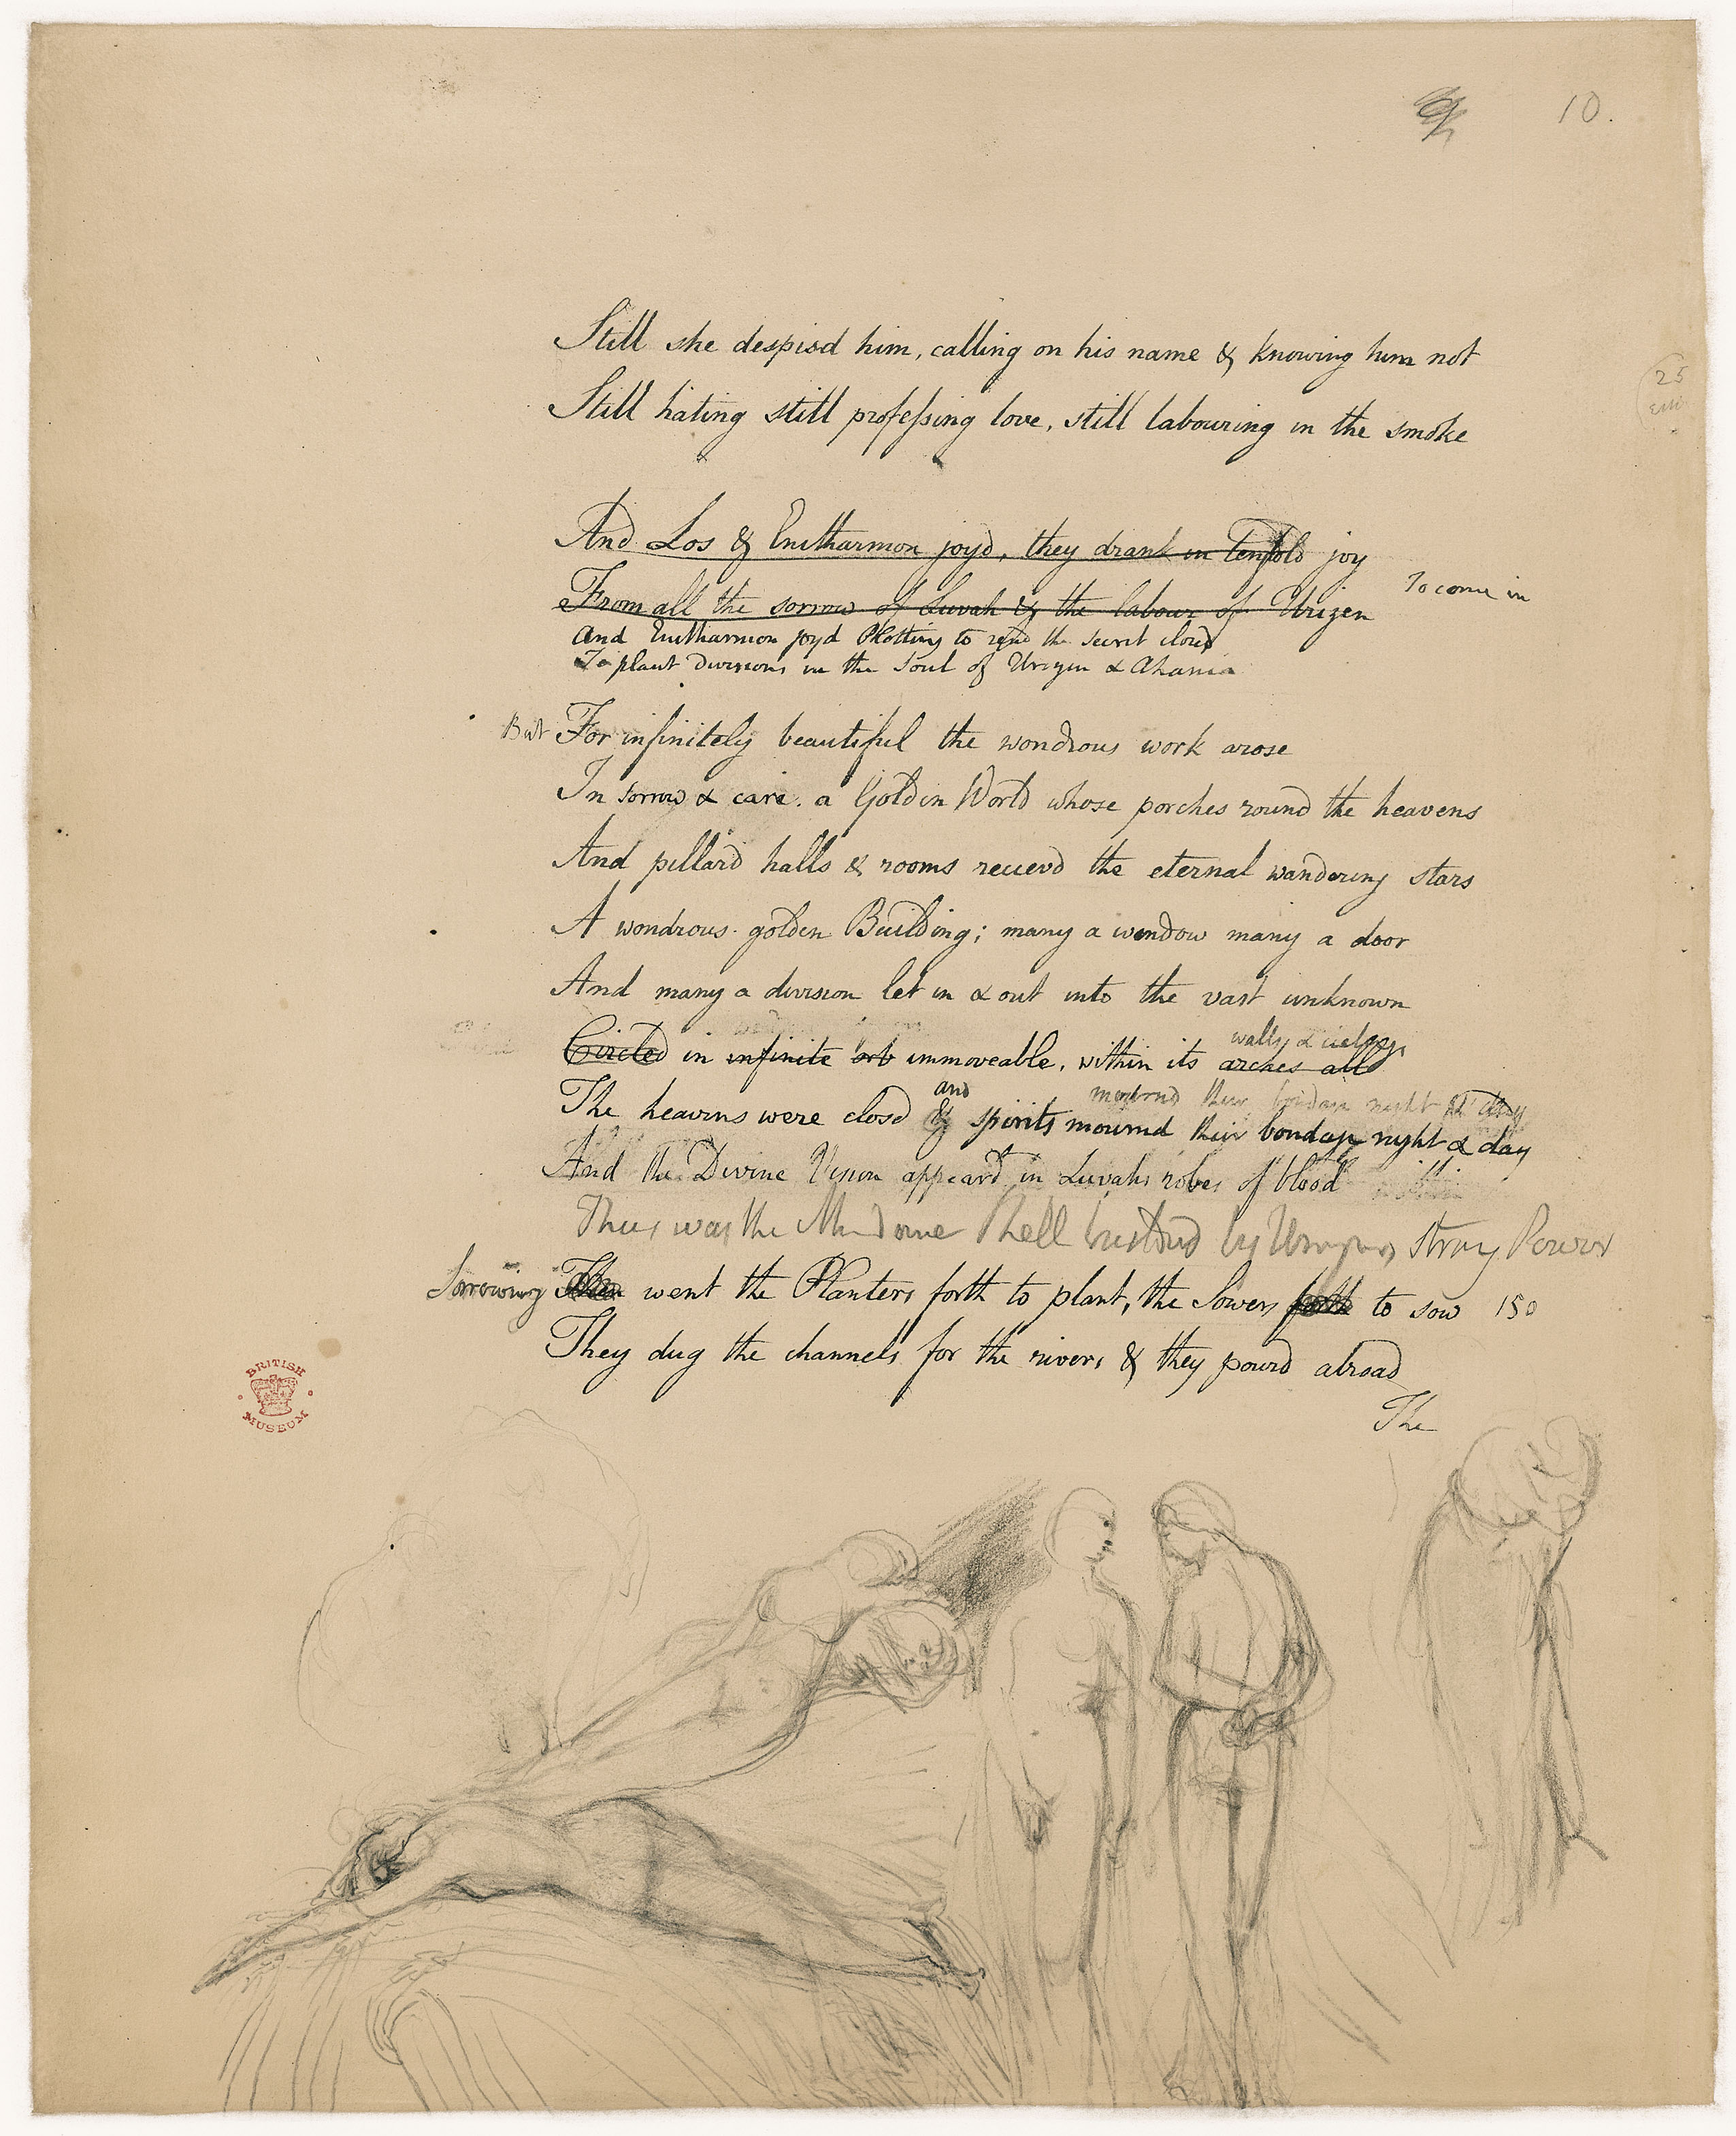 10.
Still she despisd him, calling on his name & knowing him not
Still hating still professing love, still labouring in the smoke
25
And Los & Enitharmon joyd, they drank in tenfold joy
To come in
From all the sorrow of Luvah & the labour of Urizen
And Enitharmon joyd Plotting to rend the secret cloud
To plant divisions in the Soul of Urizen & Ahania
But For infinitely beautiful the wondrous work arose
In sorrow & care. a Golden World whose porches round the heavens
And pillard halls & rooms recievd the eternal wandering stars
A wondrous golden Building; many a window many a door
And many a division let in & out into the vast unknown
walls & cielings
Circled in infinite orb immoveable, within its arches all
and mournd their bondage night & day
The heavens were closd & spirits mournd their bondage night & day
And the Divine Vision appeard in Luvahs robes of blood
Thus was the Mundane Shell builded by Urizens strong Power
Sorrowing Then went the Planters forth to plant, the Sowers forth to sow 150
They dug the channels for the rivers & they pourd abroad
The
BRITISH
MUSEUM